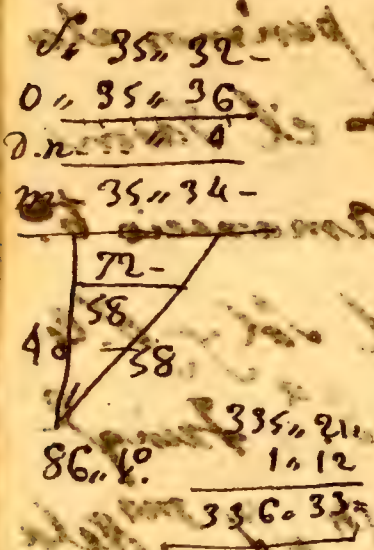 35,, 32 -
0,, 35,, 36
D.n. ,, 4
m - 35,, 34 -
72 -
58
4°
58
86,, 4°
335,, 21,,
1,, 12
336,, 33 =